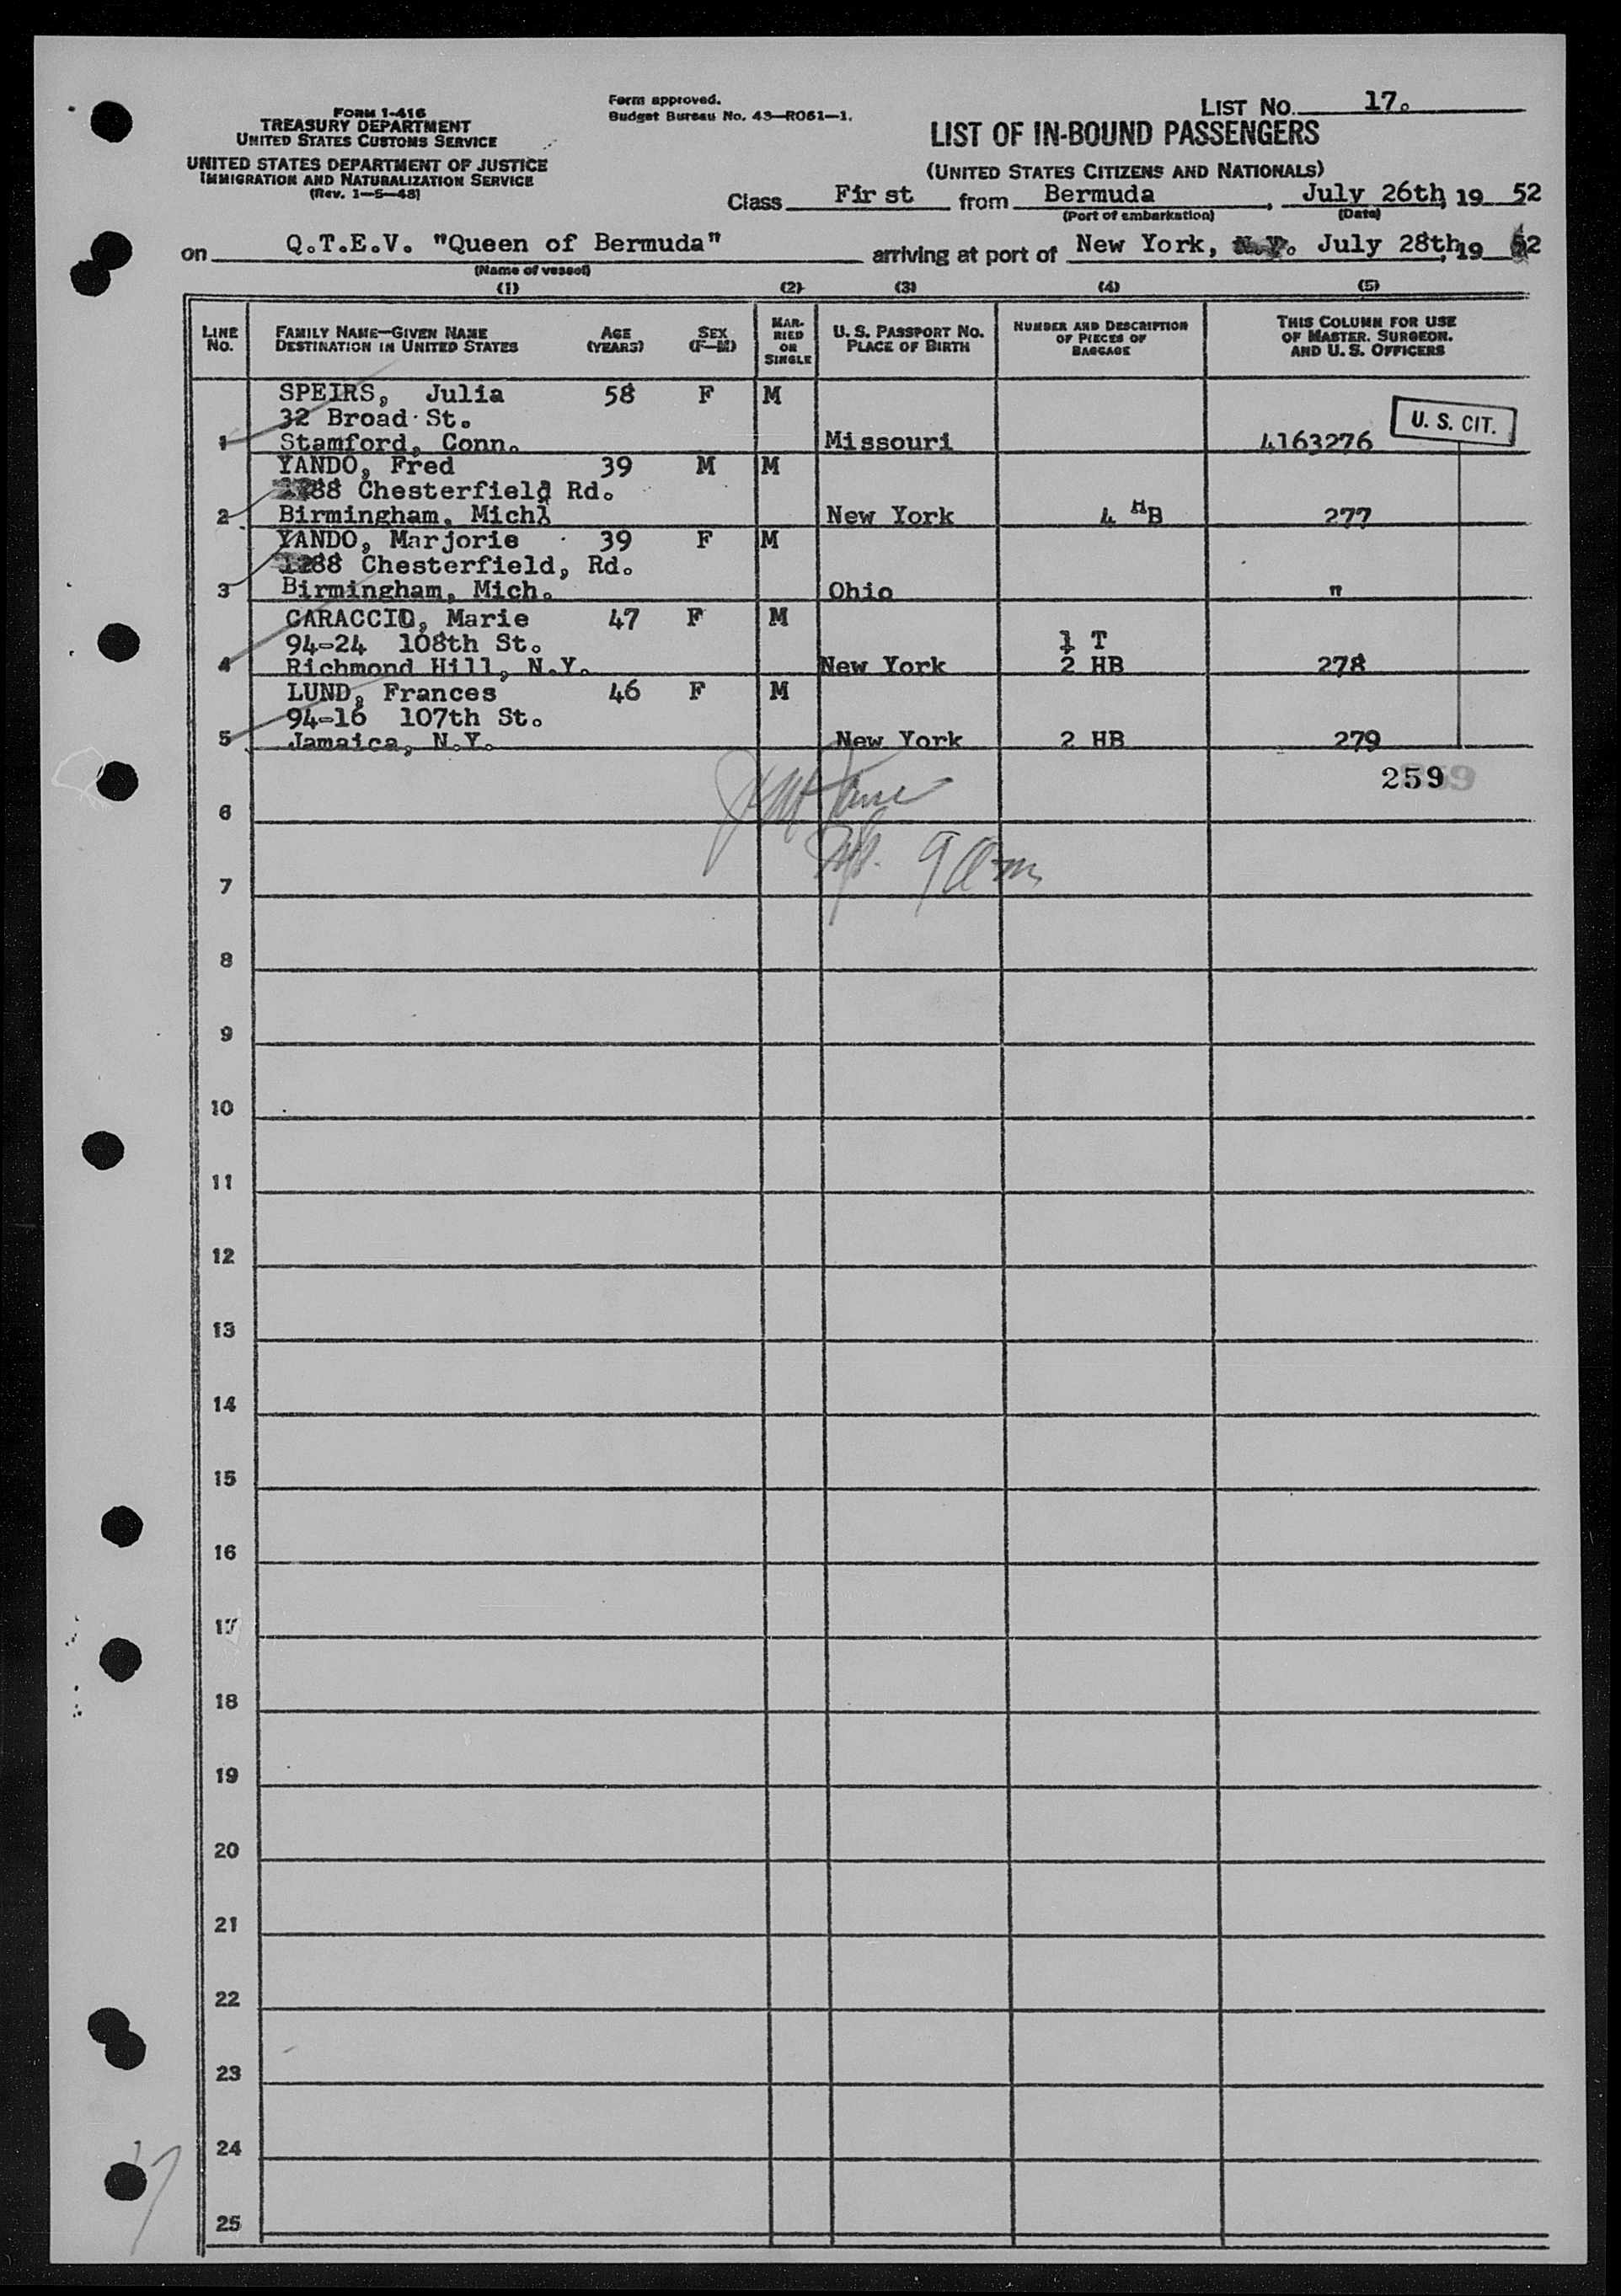 FORM I-416
TREASURY DEPARTMENT
UNITED STATES CUSTOMS SERVICE
UNITED STATES DEPARTMENT OF JUSTICE
IMMIGRATION AND NATURALIZATION SERVICE
(Rev. 1-5-48)
Form approved.
Budget Bureau No. 43-R061-1.
LIST NO. 17.
LIST OF IN-BOUND PASSENGERS
(UNITED STATES CITIZENS AND NATIONALS)
Class First from Bermuda, July 26th, 19 52
(Port of embarkation) (Date)
on Q.T.E.V. "Queen of Bermuda" arriving at port of New York, N.Y. July 28th, 19 52
(Name of vessel)
(1) (2) (3) (4) (5)
LINE NO. FAMILY NAME—GIVEN NAME DESTINATION IN UNITED STATES AGE (YEARS) SEX (F—M) MARRIED OR SINGLE U. S. PASSPORT NO. PLACE OF BIRTH NUMBER AND DESCRIPTION OF PIECES OF BAGGAGE THIS COLUMN FOR USE OF MASTER, SURGEON, AND U. S. OFFICERS
SPEIRS, Julia 58 F M
32 Broad St. U. S. CIT.
1 Stamford, Conn. Missouri 4163276
YANDO, Fred 39 M M
88 Chesterfield Rd.
2 Birmingham, Mich. New York 4 HB 277
YANDO, Marjorie 39 F M
1288 Chesterfield, Rd.
3 Birmingham, Mich. Ohio "
CARACCIO, Marie 47 F M
94-24 108th St. 1 T
4 Richmond Hill, N.Y. New York 2 HB 278
LUND, Frances 46 F M
94-16 107th St.
5 Jamaica, N.Y. New York 2 HB 279
259
6
9 am
7
8
9
10
11
12
13
14
15
16
17
18
19
20
21
22
23
24
17
25